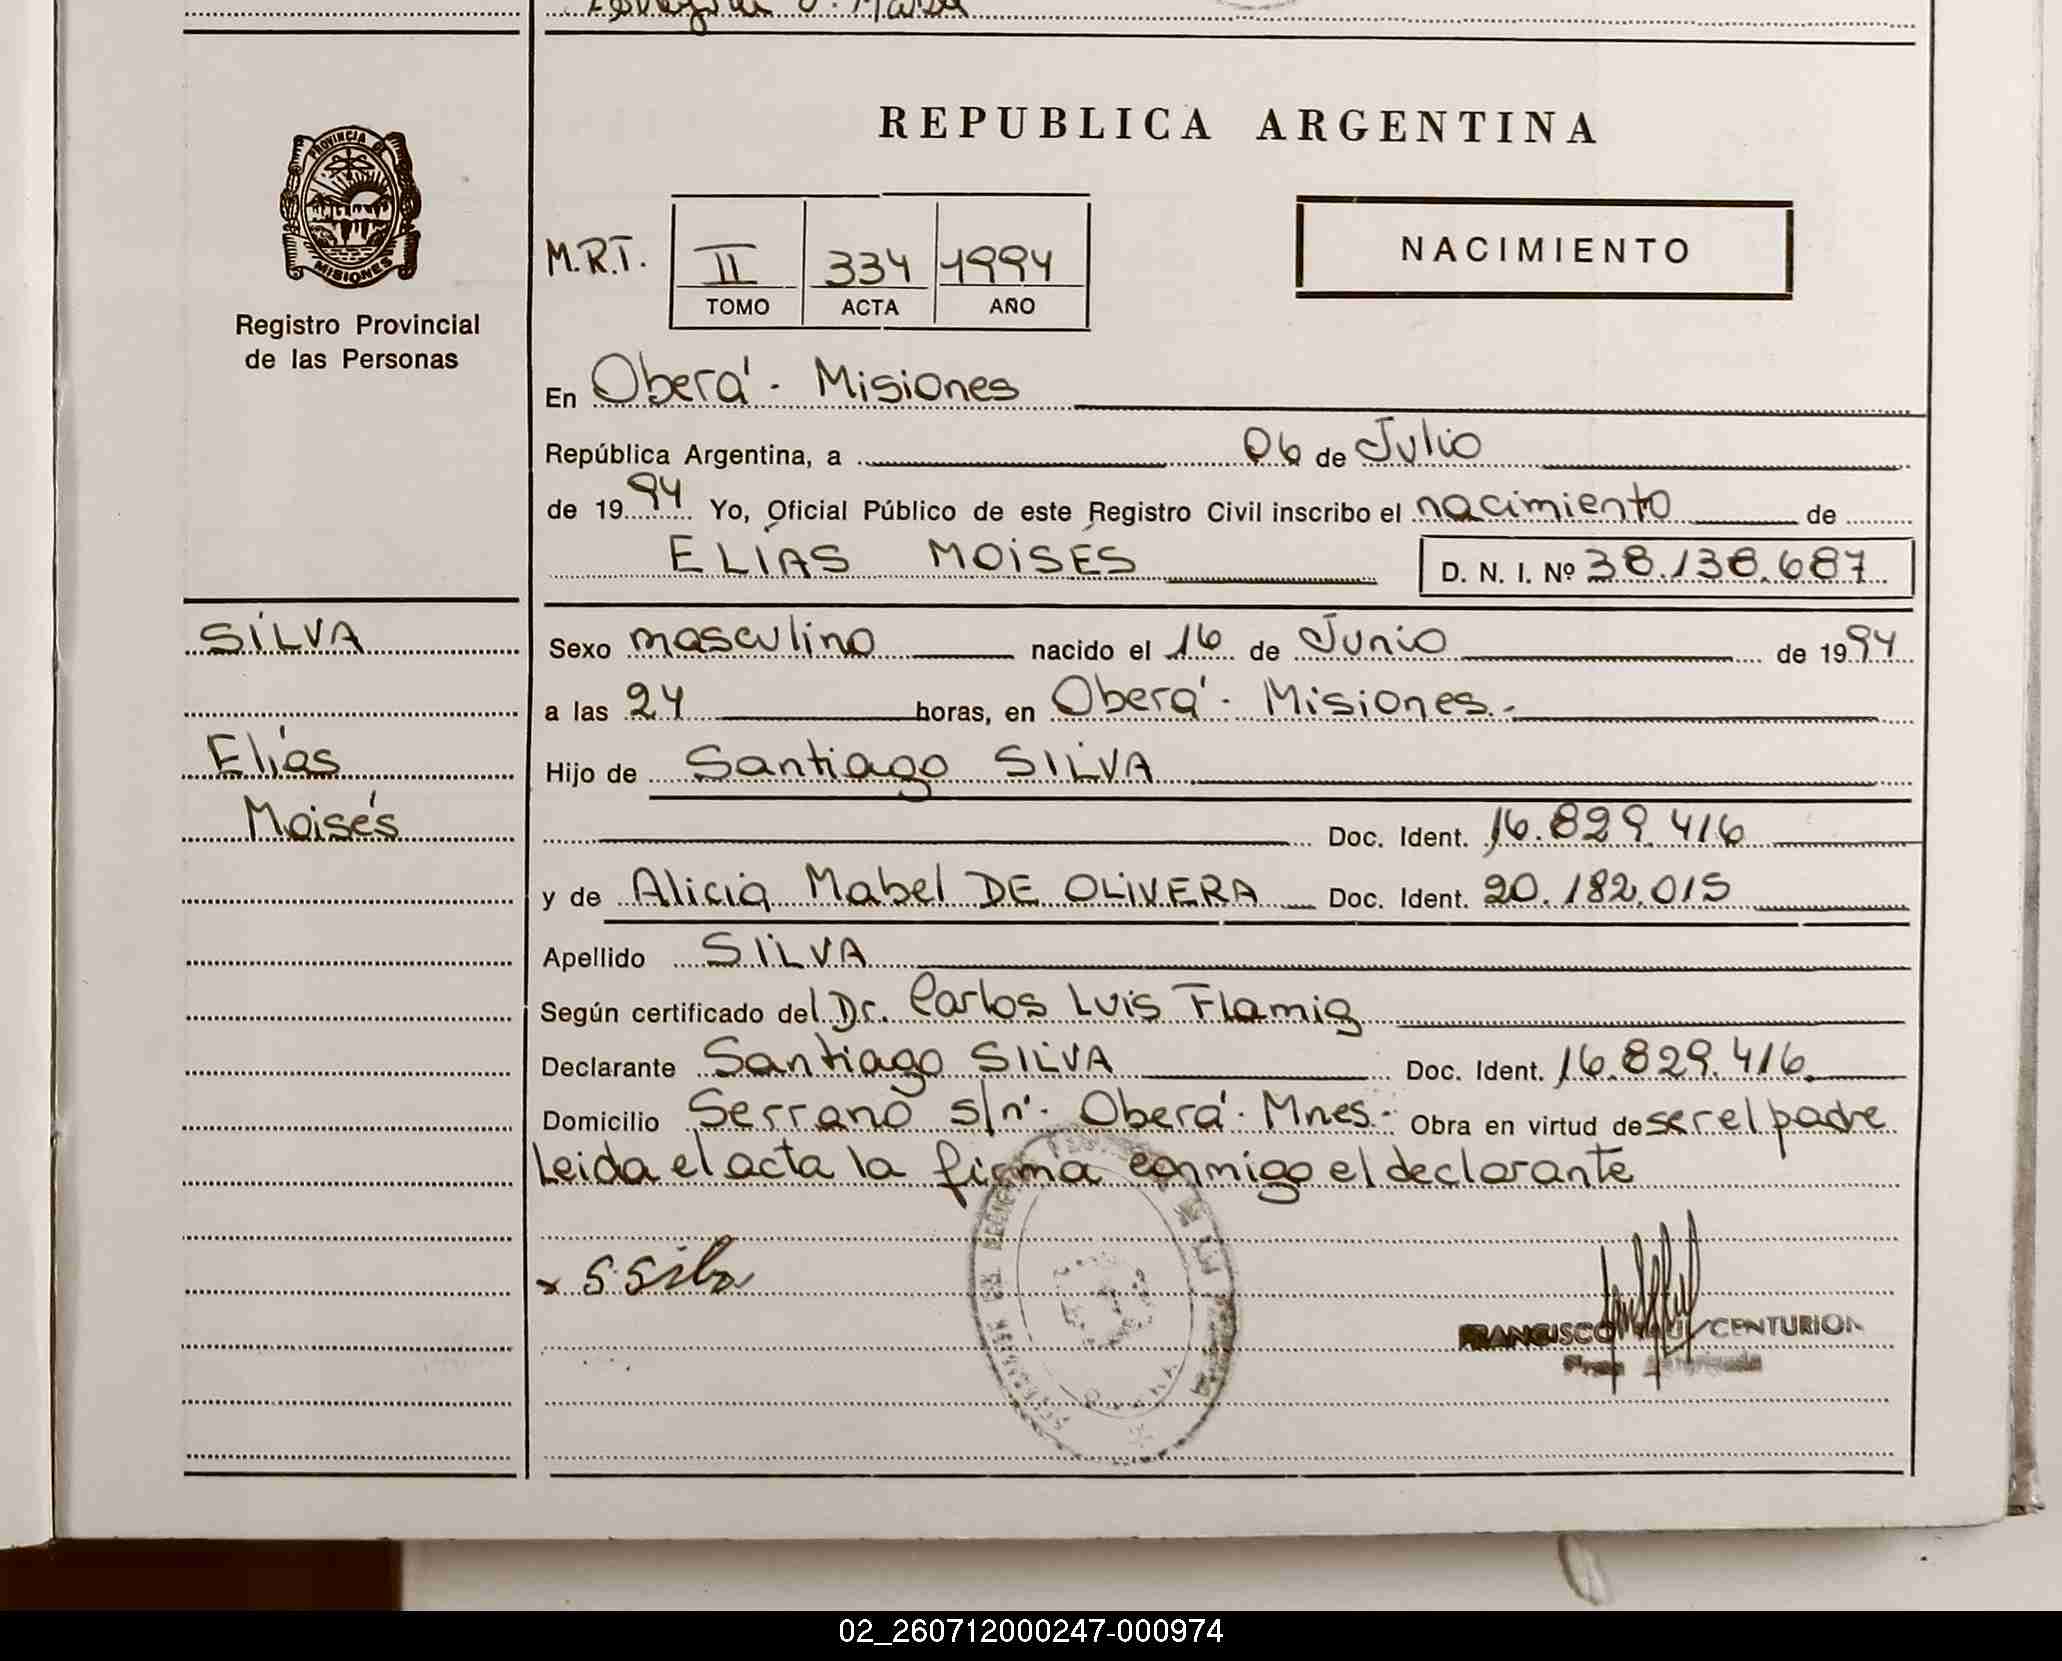 REPUBLICA ARGENTINA
PROVINCIA DE
MISIONES
Registro Provincial
de las Personas
M.R.T.
II 334 1994
TOMO ACTA AÑO
NACIMIENTO
En Oberá - Misiones
República Argentina, a 06 de Julio
de 1994 Yo, Oficial Público de este Registro Civil inscribo el nacimiento de
ELÍAS MOISÉS D. N. I. Nº 38.138.687
SILVA
Elías
Moisés
Sexo masculino nacido el 16 de Junio de 1994
a las 24 horas, en Oberá - Misiones.-
Hijo de Santiago SILVA
Doc. Ident. 16.829.416
y de Alicia Mabel DE OLIVERA Doc. Ident. 20.182.015
Apellido SILVA
Según certificado del Dr. Carlos Luis Flamig
Declarante Santiago SILVA Doc. Ident. 16.829.416.
Domicilio Serrano s/nº. Oberá - Mnes.- Obra en virtud de ser el padre
Leida el acta la firma conmigo el declarante
x S Silva
FRANCISCO CENTURION
02_260712000247-000974